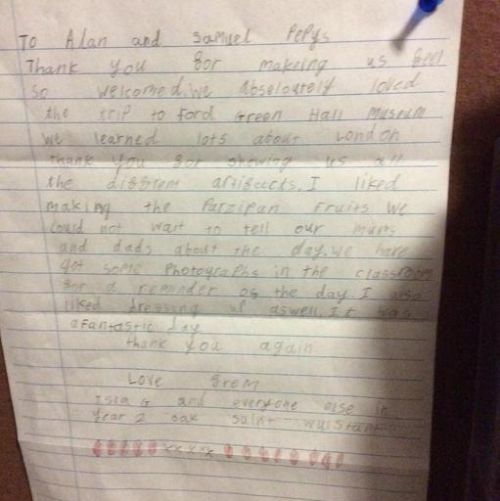 To Alan and Samuel Pepys
Thank you for makeing us feel
so welcomed. we abseloutely loved
the trip to Ford Green Hall Museum
we learned lots about London
thank you for showing us all
the artifacts. I liked
making the fruits. We
could not wait to tell our mums
and dads about the day. we have
got some Photographs in the classroom
for a reminder of the day. I also
liked dressing up aswell. It was
a Fantastic day
thank you again
Love from
Isla G and everyone else in
Year 2 oak saint
xxxxx